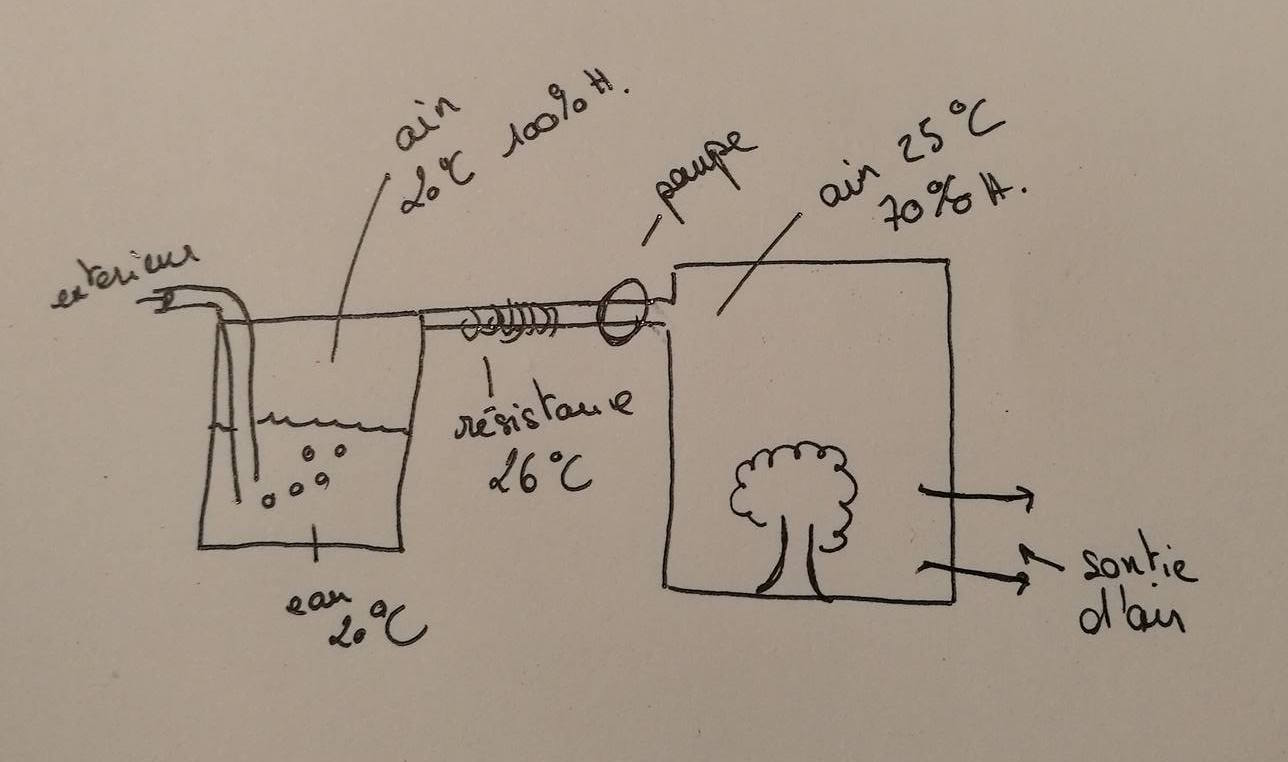 air
20°C 100% H.
pompe
air 25°C
70% H.
extérieur
résistance
26°C
eau
20°C
sortie
d'air